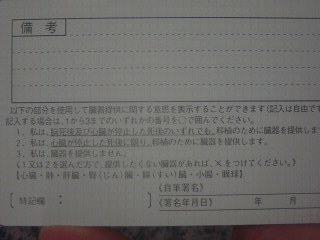 備考
以下の部分を使用して臓器提供に関する意思を表示することができます(記入は自由で
記入する場合は、1から3までのいずれかの番号を○で囲んでください。
1. 私は、脳死後及び心臓が停止した死後のいずれでも、移植のために臓器を提供しま
2. 私は、心臓が停止した死後に限り、移植のために臓器を提供します
3. 私は、臓器を提供しません。
《1又は2を選んだ方で、提供したくない臓器があれば、×をつけてください。》
【心臓・肺・肝臓・腎(じん)臓・膵(すい)臓・小腸・眼球】
〔特記欄:
《自筆署名》
《署名年月日》 年 月